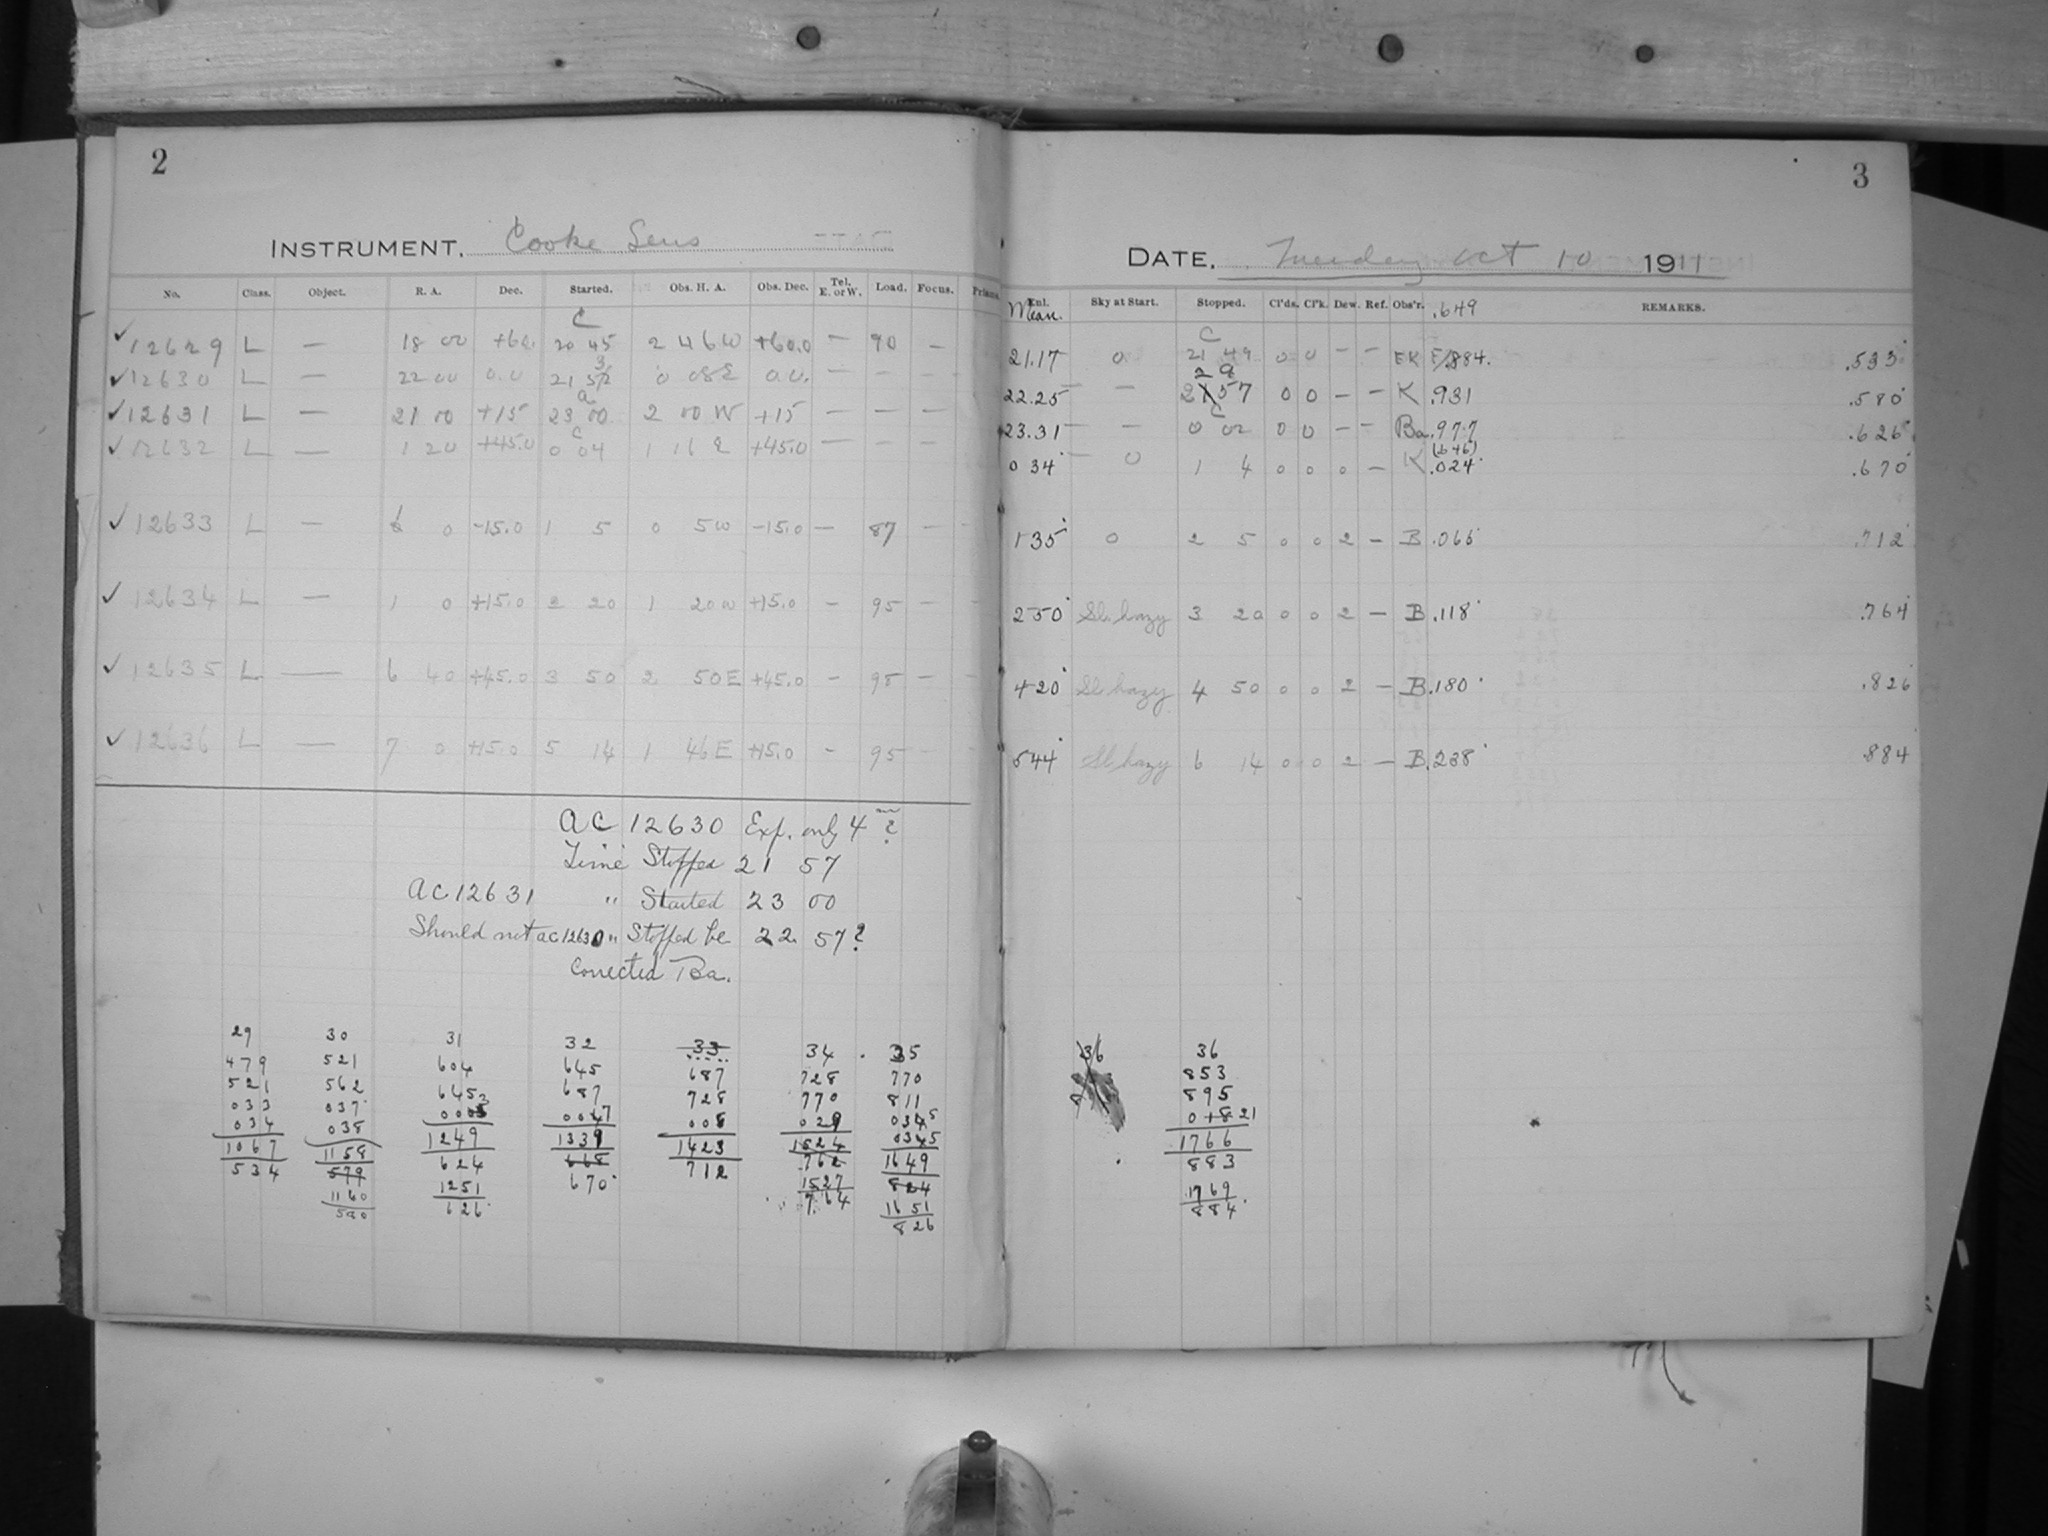 2
INSTRUMENT. Cooke Lens
No. Class. Object. R. A. Dec. Started. Obs. H. A. Obs. Dec. Tel. E. or W. Load. Focus. Prisms.
C
✓12629 L — 18 00 +60. 20 45 2 46W +60.0 — 90 —
3
✓12630 L — 22 00 0.0 21 52 0 08E 0.0. — — —
a
✓12631 L — 21 00 +15 23 00 2 00 W +15 — — —
C
✓12632 L — 1 20 +45.0 0 04 1 16 E +45.0 — — —
✓12633 L — 1 0 -15.0 1 5 0 5W -15.0 — 87 —
✓12634 L — 1 0 +15.0 2 20 1 20W +15.0 — 95 —
✓12635 L — 6 40 +45.0 3 50 2 50E +45.0 — 95 —
✓12636 L — 7 0 +15.0 5 14 1 46E +15.0 — 95 —
AC 12630 Exp. only 4 m ?
Time Stopped 21 57
AC 12631 " Started 23 00
Should not AC 12630 " Stopped be 22 57?
Corrected Ba.
29 30 31 32 33 34 35
479 521 604 645 687 728 770
521 562 645 687 728 770 811
033 037 0047 008 029
034 038
1067 1158 1249 1339 1423 1524 1649
534 579 624 668 712 762 824
1160 1251 670 1527 1651
580 626 764 826
3
DATE. Tuesday Oct 10 1911
Enl. Sky at Start. Stopped. Cl'ds. Cl'k. Dew. Ref. Obs'r. .649 REMARKS.
Mean.
C
21.17 0 21 49 0 0 — — EK .884. .533
22.25 — — 2157 0 0 — — K .931 .580
C
23.31 — — 0 02 0 0 — — Ba .977 .626
(646)
0 34 — 0 1 4 0 0 0 — K .024 .670
1 35 0 2 5 0 0 2 — B .065 .712
2 50 Sl. hazy 3 20 0 0 2 — B .118 .764
4 20 Sl. hazy 4 50 0 0 2 — B .180 .826
5 44 Sl. hazy 6 14 0 0 2 — B .238 884
36 36
853
895
1766
883
1769
884